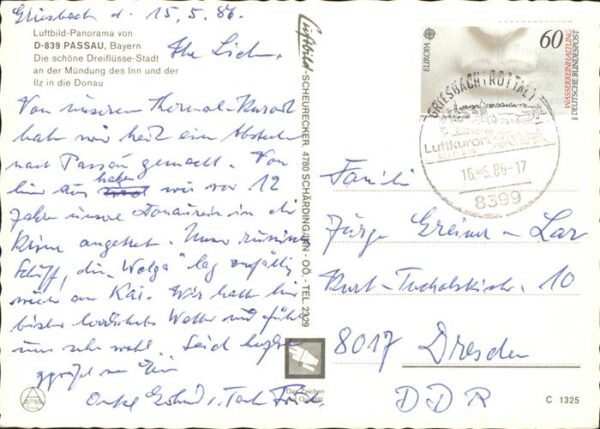 Griesbach d. 15.5.86.
Luftbild-Panorama von
D-839 PASSAU, Bayern
Die schöne Dreiflüsse-Stadt
an der Mündung des Inn und der
Ilz in die Donau
Ihr Lieben,
Von unserem Thermal-Kurort
haben wir heut ein Abstecher
nach Passau gemacht. Von
hier aus haben wir vor 12
Jahren unsere Donaureise in die
angetret. Unser russisches
Schiff, die "Wolga" lag zufällig
auch am Kai. Wir hatten hier
bisher herrlichstes Wetter und fühlen
uns sehr wohl. Seid herzlich
gegrüßt von
Onkel u. Tante
Luftbild-SCHEURECKER, 4780 SCHÄRDING/INN - OÖ. - TEL 2329
Das Zeichen
der Qualität
EUROPA
60
WASSERREINHALTUNG
DEUTSCHE BUNDESPOST
GRIESBACH I ROTTAL
Luftkurort
16.-5.86-17
8399
Familie
Jürgen
Kurt-Tucholskistr. 10
8017 Dresden
DDR
C 1325